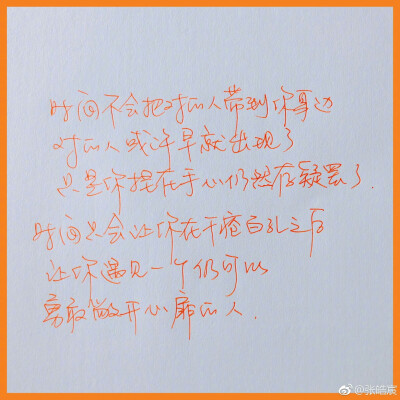 时间不会把对的人带到你身边
对的人或许早就出现了
只是你捏在手心仍然存疑罢了.
时间只会让你在千疮百孔之后
让你遇见一个仍可以
勇敢敞开心扉的人.
@张皓宸